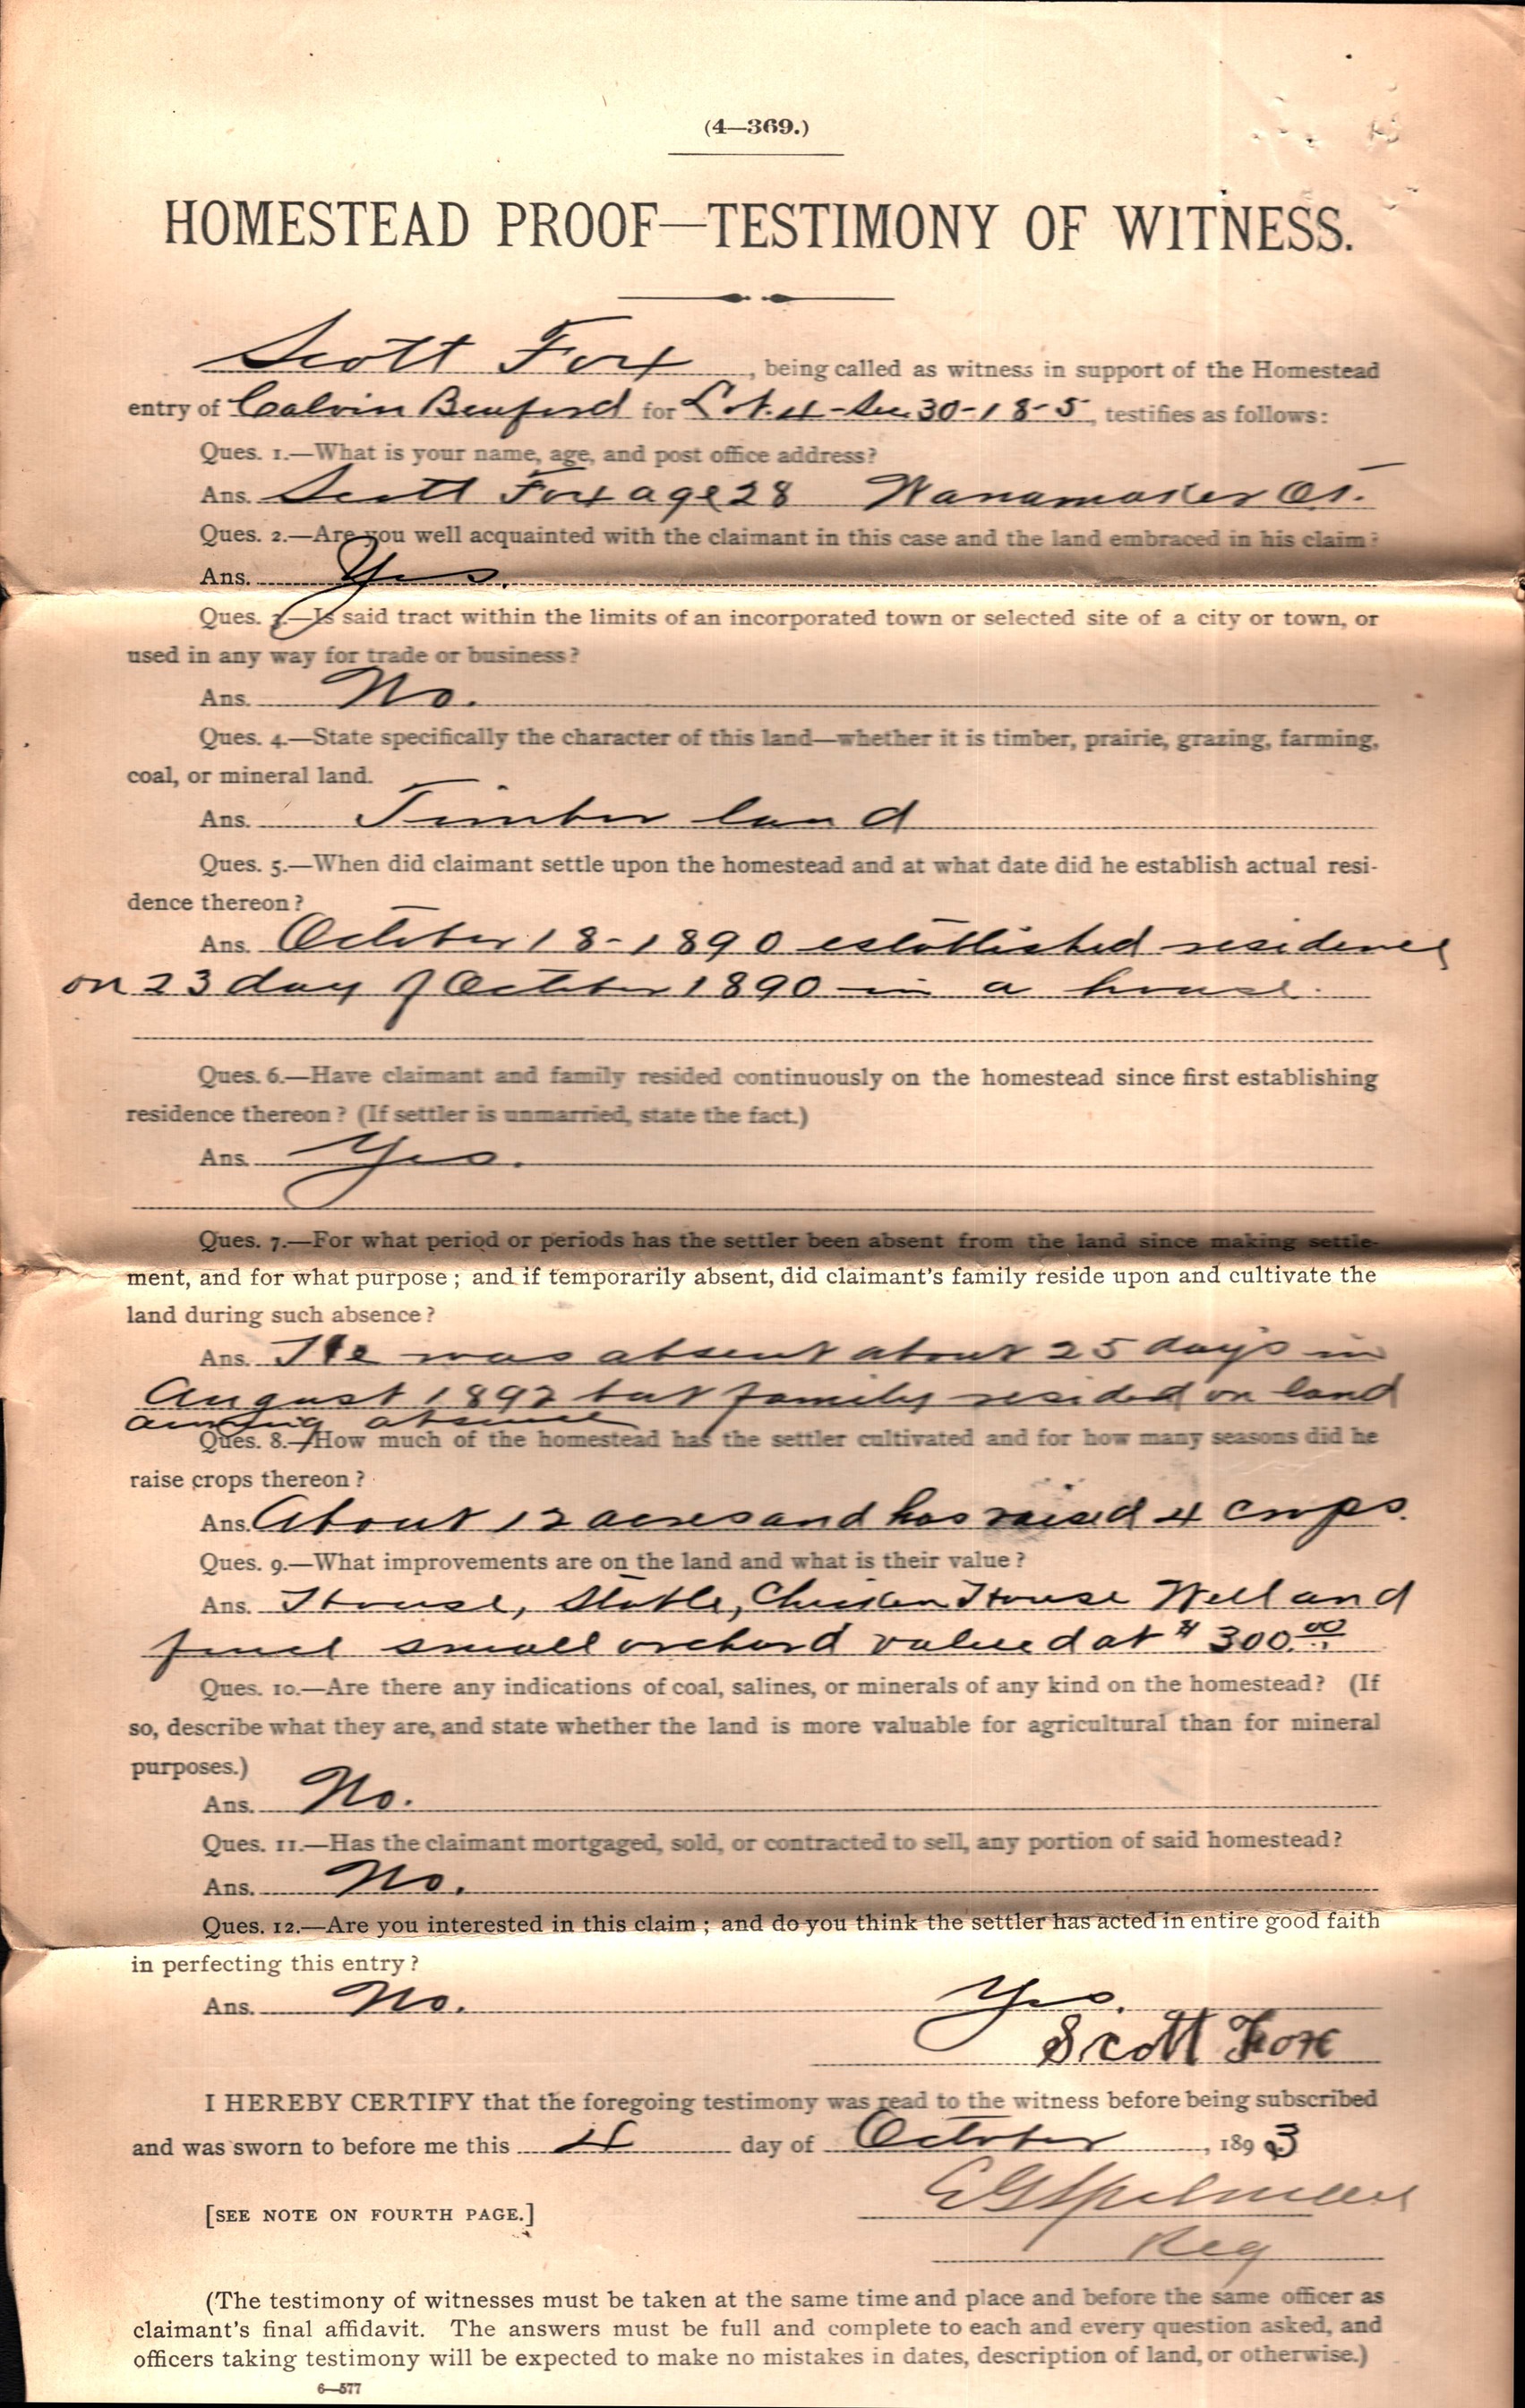 (4—369.)
HOMESTEAD PROOF—TESTIMONY OF WITNESS.
Scott Fox, being called as witness in support of the Homestead
entry of Calvin Benford for Lot. 4 - Sec 30-18-5, testifies as follows:
Ques. 1.—What is your name, age, and post office address?
Ans. Scott Fox age 28 Wanamaker O.T.
Ques. 2.—Are you well acquainted with the claimant in this case and the land embraced in his claim?
Ans. Yes.
Ques. 3.—Is said tract within the limits of an incorporated town or selected site of a city or town, or
used in any way for trade or business?
Ans. No.
Ques. 4.—State specifically the character of this land—whether it is timber, prairie, grazing, farming,
coal, or mineral land.
Ans. Timber land
Ques. 5.—When did claimant settle upon the homestead and at what date did he establish actual resi-
dence thereon?
Ans. October 18-1890 established residence
on 23 day of October 1890 in a house.
Ques. 6.—Have claimant and family resided continuously on the homestead since first establishing
residence thereon? (If settler is unmarried, state the fact.)
Ans. Yes.
Ques. 7.—For what period or periods has the settler been absent from the land since making settle-
ment, and for what purpose; and if temporarily absent, did claimant's family reside upon and cultivate the
land during such absence?
Ans. He was absent about 25 days in
August 1892 but family resided on land
during absence
Ques. 8.—How much of the homestead has the settler cultivated and for how many seasons did he
raise crops thereon?
Ans. About 12 acres and has raised 4 crops.
Ques. 9.—What improvements are on the land and what is their value?
Ans. House, Stable, Chicken House Well and
small orchard valued at $300.00
Ques. 10.—Are there any indications of coal, salines, or minerals of any kind on the homestead? (If
so, describe what they are, and state whether the land is more valuable for agricultural than for mineral
purposes.)
Ans. No.
Ques. 11.—Has the claimant mortgaged, sold, or contracted to sell, any portion of said homestead?
Ans. No.
Ques. 12.—Are you interested in this claim; and do you think the settler has acted in entire good faith
in perfecting this entry?
Ans. No. Yes.
Scott Fox
I HEREBY CERTIFY that the foregoing testimony was read to the witness before being subscribed
and was sworn to before me this 4 day of October, 1893
E G Spilman
[SEE NOTE ON FOURTH PAGE.]
Reg
(The testimony of witnesses must be taken at the same time and place and before the same officer as
claimant's final affidavit. The answers must be full and complete to each and every question asked, and
officers taking testimony will be expected to make no mistakes in dates, description of land, or otherwise.)
6—577